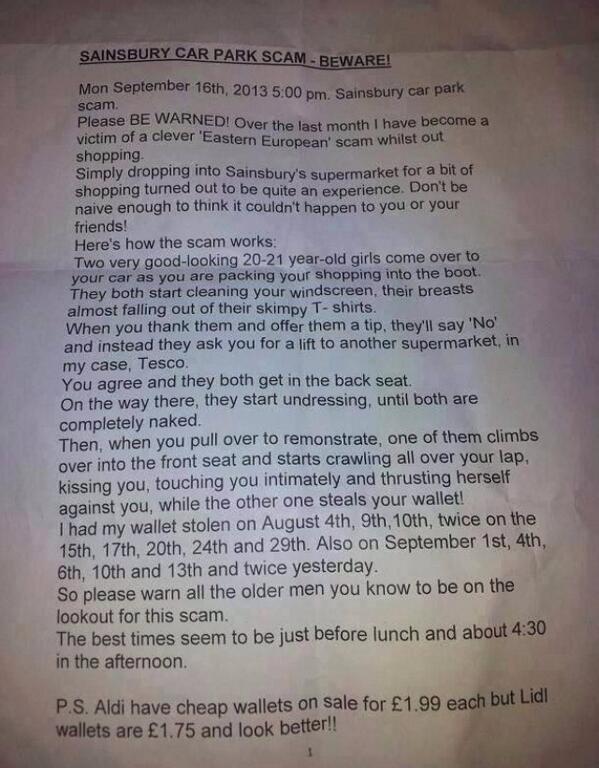 SAINSBURY CAR PARK SCAM - BEWARE!
Mon September 16th, 2013 5:00 pm. Sainsbury car park
scam.
Please BE WARNED! Over the last month I have become a
victim of a clever 'Eastern European' scam whilst out
shopping.
Simply dropping into Sainsbury's supermarket for a bit of
shopping turned out to be quite an experience. Don't be
naive enough to think it couldn't happen to you or your
friends!
Here's how the scam works:
Two very good-looking 20-21 year-old girls come over to
your car as you are packing your shopping into the boot.
They both start cleaning your windscreen, their breasts
almost falling out of their skimpy T- shirts.
When you thank them and offer them a tip, they'll say 'No'
and instead they ask you for a lift to another supermarket, in
my case, Tesco.
You agree and they both get in the back seat.
On the way there, they start undressing, until both are
completely naked.
Then, when you pull over to remonstrate, one of them climbs
over into the front seat and starts crawling all over your lap,
kissing you, touching you intimately and thrusting herself
against you, while the other one steals your wallet!
I had my wallet stolen on August 4th, 9th,10th, twice on the
15th, 17th, 20th, 24th and 29th. Also on September 1st, 4th,
6th, 10th and 13th and twice yesterday.
So please warn all the older men you know to be on the
lookout for this scam.
The best times seem to be just before lunch and about 4:30
in the afternoon.
P.S. Aldi have cheap wallets on sale for £1.99 each but Lidl
wallets are £1.75 and look better!!
1